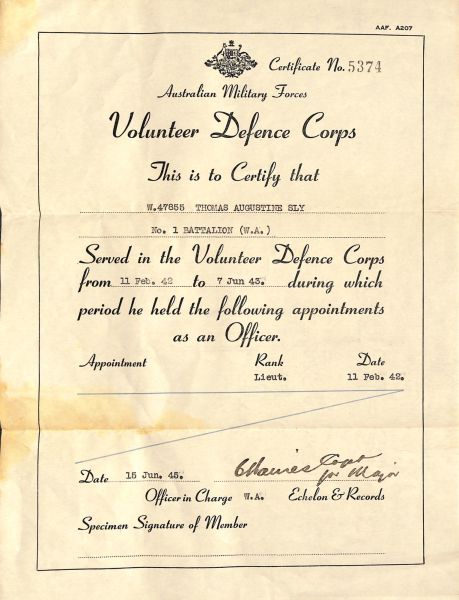 AAF. A207
Certificate No. 5374
Australian Military Forces
Volunteer Defence Corps
This is to Certify that
W.47855 THOMAS AUGUSTINE SLY
No. 1 BATTALION (W.A.)
Served in the Volunteer Defence Corps
from 11 Feb. 42 to 7 Jun 43. during which
period he held the following appointments
as an Officer.
Appointment Rank Date
Lieut. 11 Feb. 42.
Capt
for Major
Date 15 Jun. 45.
Officer in Charge W.A. Echelon & Records
Specimen Signature of Member